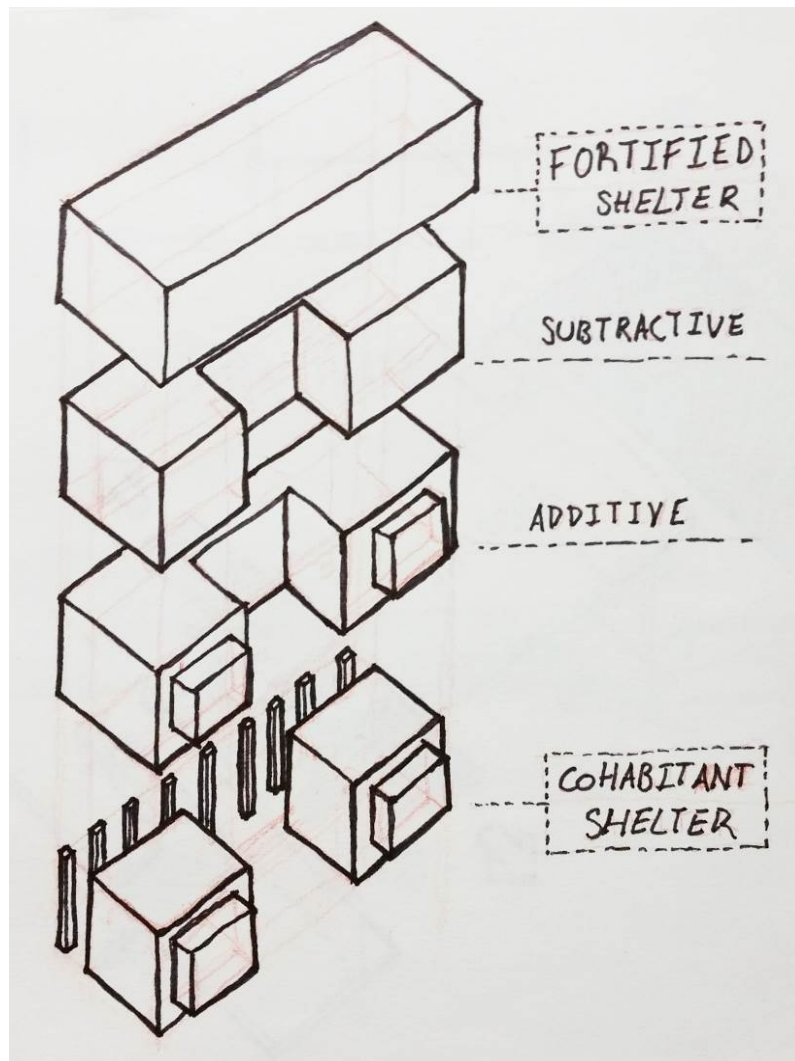 FORTIFIED
SHELTER
SUBTRACTIVE
ADDITIVE
COHABITANT
SHELTER